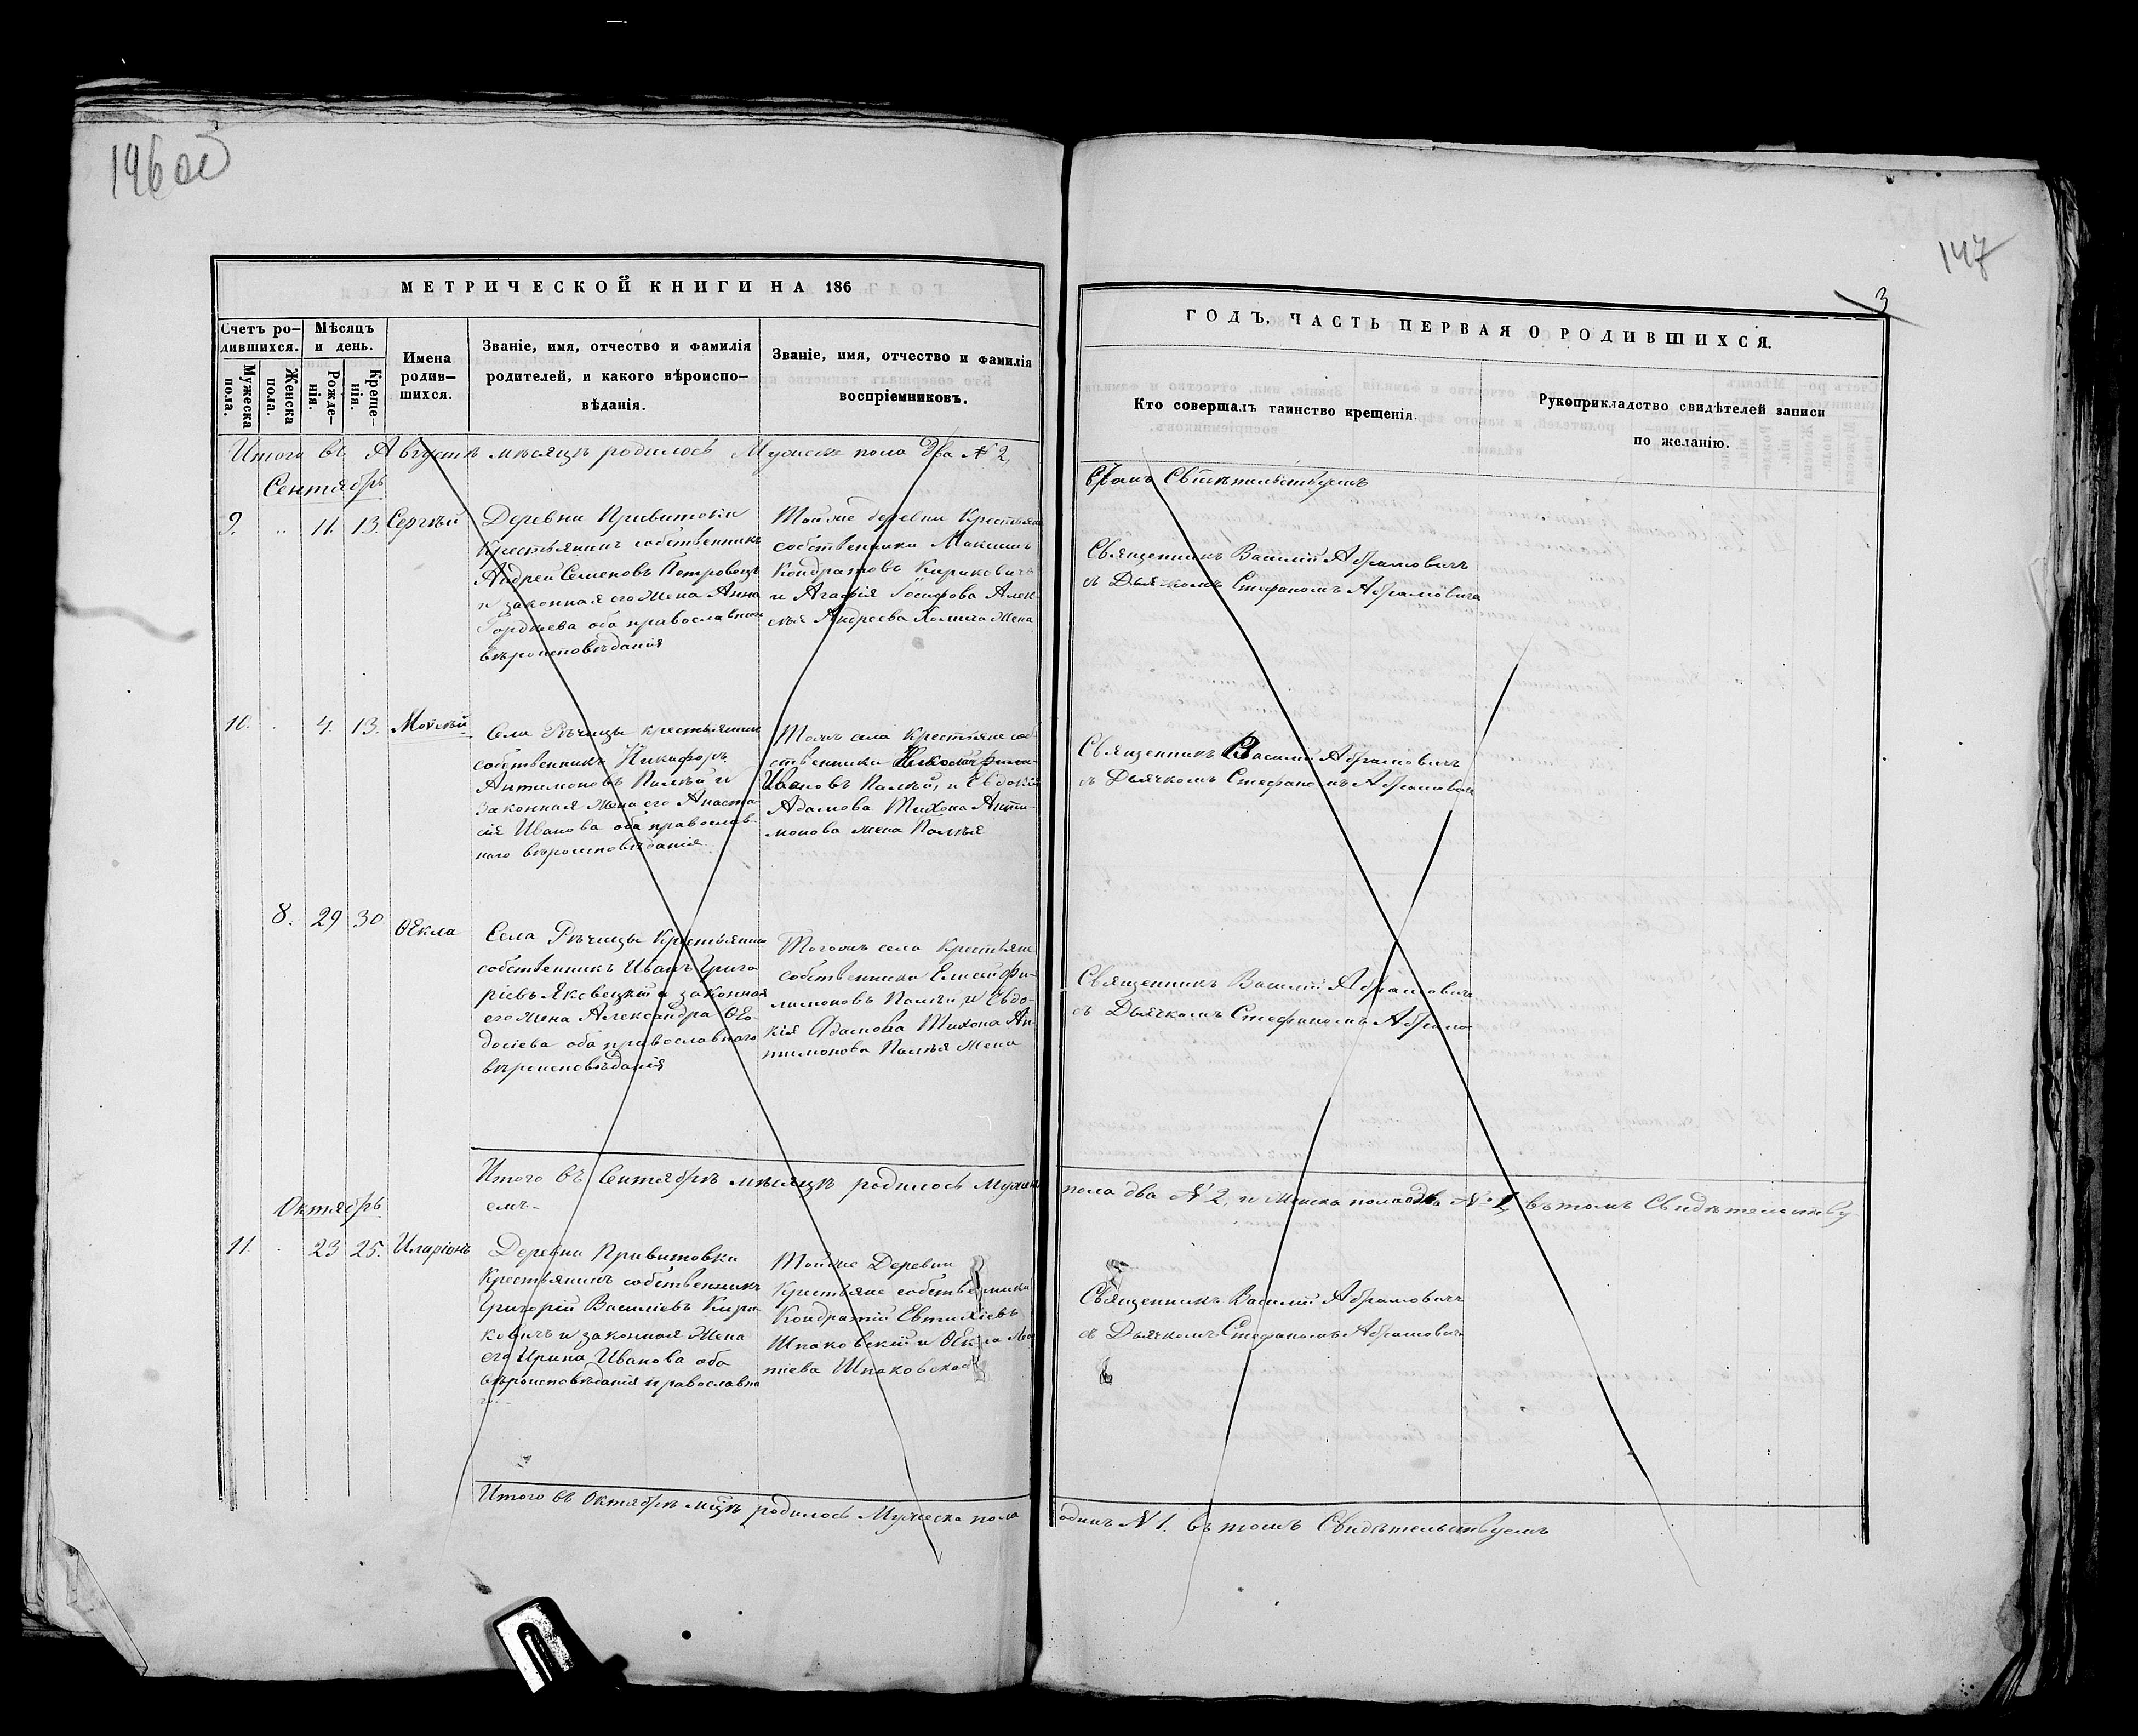 146 об
147
3
МЕТРИЧЕСКОЙ КНИГИ НА 186
ГОДЪ, ЧАСТЬ ПЕРВАЯ О РОДИВШИХСЯ.
Счетъ ро-
дившихся.
Мужеска
пола.
Женска
пола.
Мѣсяцъ
и день.
Рожде-
нія.
Креще-
нія.
Имена
родив-
шихся.
Званіе, имя, отчество и фамилія
родителей, и какого вѣроиспо-
вѣданія.
Званіе, имя, отчество и фамилія
воспріемниковъ.
Кто совершалъ таинство крещенія.
Рукоприкладство свидѣтелей записи
по желанію.
Итого въ Августѣ мѣсяцѣ родилось Мужеска пола два № 2,
Свидѣтельствуемъ
Сентябрь
9. " 11. 13. Сергѣй
Деревни Привитовки
Крестьянинъ собственникъ
Андрей Семеновъ Петровецъ
и законная его Жена Анна
Гордѣева оба православнаго
вѣроисповѣданія
Тойже деревни Крестьяне
собственники Максимъ
Кондратовъ Кириковичъ
и Агафія Іосифова Алек-
сѣя Андреева жена
Священникъ Василій Абрамовичъ
съ Дьячкомъ Стефаномъ Абрамовичемъ
10. 4. 13. Моисей
Села Рѣчицы крестьянинъ
собственникъ Никифоръ
Антимоновъ и
Законная Жена его Анаста-
сія Иванова оба православ-
наго вѣроисповѣданія
Тогожъ села Крестьяне соб-
ственники
Ивановъ и Евдокія
Адамова Тихона Анти-
монова жена
Священникъ Василій Абрамовичъ
съ Дьячкомъ Стефаномъ Абрамовичемъ
8. 29 30 Ѳекла
Села Рѣчицы Крестьянинъ
собственникъ Иванъ Григо
ріевъ и законная
его Жена Александра Ѳео-
досіева оба православнаго
вѣроисповѣданія
Тогожъ села Крестьяне
собственники Елисей Фи-
лимоновъ и Евдо-
кія Адамова Тихона Ан-
тимонова Жена
Священникъ Василій Абрамовичъ
съ Дьячкомъ Стефаномъ Абрамо
Итого въ Сентябрѣ мѣсяцѣ родилось Мужеска
пола два № 2, и Женска пола № 1, въ томъ Свидѣтельству-
емъ.
Октябрь
11. 23 25. Иларіонъ
Деревни Привитовки
Крестьянинъ собственникъ
Григорій Василіевъ Кири
ковичъ и законная Жена
его Ирина Иванова оба
вѣроисповѣданія православна
го
Тойже Деревни
Крестьяне собственники
Кондратій Евтихіевъ
Шпаковскій и Ѳекла
Шпаковская
Священникъ Василій Абрамовичъ
съ Дьячкомъ Стефаномъ Абрамовичемъ
Итого въ Октябрѣ мцѣ родилось Мужеска пола
одинъ № 1. въ томъ Свидѣтельствуемъ